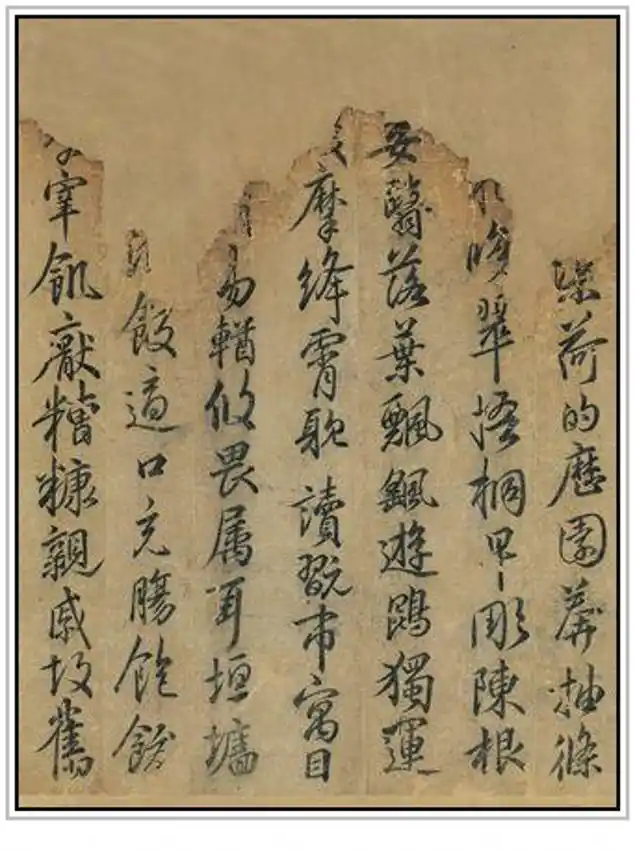 渠荷的歷園莽抽條
晚翠梧桐早彫陳根
委翳落葉飄颻遊鵾獨運
摩絳霄耽讀翫市寓目
易輶攸畏属耳垣墻
飯適口充腸飽飫
宰飢猒糟糠親戚故舊